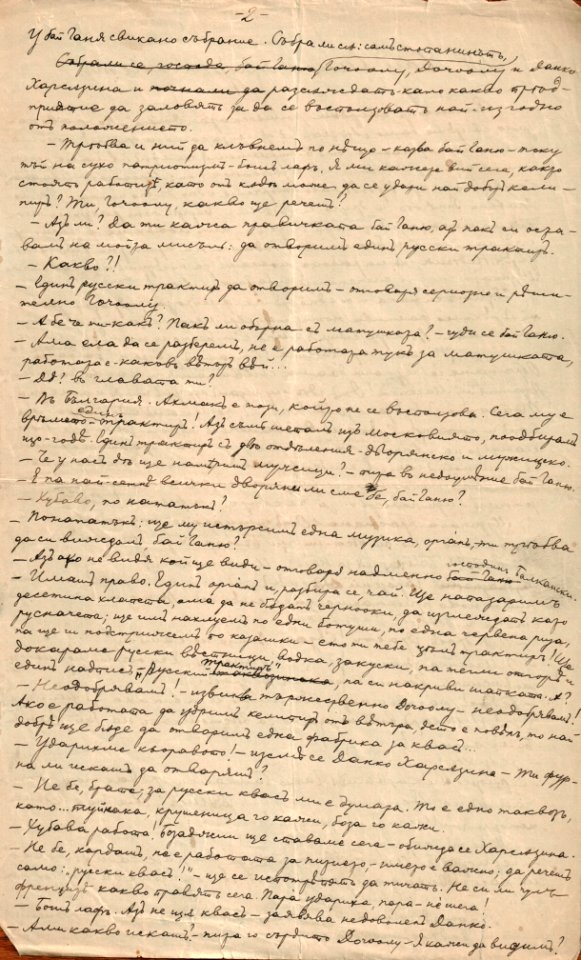 -2-
У бай Ганя свикано събрание. Събрали се: самъ стопанинътъ,
Събрали се, господа, бай Ганю, Гочоолу, Дочоолу и Данко
Харсъзина и почнали да разсъждатъ като какво пред-
приятие да заловятъ за да се въсползоватъ най-изгодно
отъ положението.
— Трѣбва и ний да клъвнемъ по нѣщо — казва бай Ганю — току
тъй на сухо патриотизмъ — бошъ лафъ, я ми кажете вий сега, какво
стоятъ работитѣ, като отъ кѫдѣ може да се удари най добъръ кели-
пиръ? Ти, Гочоолу, какво ще речешъ?
— Азъ ли? Да ти кажа правичката бай Ганю, азъ пакъ си оста-
вамъ на мойта мисъль: да отворимъ единъ русски трактиръ.
— Какво?!
— Единъ русски трактиръ да отворимъ — отговаря сериозно и рѣши-
телно Гочоолу.
— Абе че ти-какъ? Пакъ ли обърна къ матушката? — чуди се бай Ганю.
— Ама ела да се разберемъ, не е работата тукъ за матушката,
работата е — какъвъ вѣтъръ вѣй...
— Дѣ? въ главата ти?
— Въ България. Ахмакъ е този, който не се въсползова. Сега му е
времето единъ трактиръ! Азъ съмъ шеталъ изъ Московията, поотбирамъ
що-годѣ. Единъ трактиръ съ двѣ отдѣления — дворянско и мужишко.
— Че у насъ дѣ ще намѣримъ мужици? — пита въ недоумѣние бай Ганю.
— Е па най-сетнѣ всички дворяни ли сме бе, бай Ганю?
— Хубаво, по нататъкъ?
— Понататъкъ: ще му истърсимъ една музика, органъ, ти трѣбва
да си виждалъ бай Ганю?
— Азъ ако не видя кой ще види — отговаря надменно бай Ганю господинъ Балкански.
— Имашъ право. Единъ органъ и, разбира се, чай. Ще напазаримъ
десетина хлапета, ама да не бѫдатъ чернооки, да изглеждатъ като
русначета; ще имъ нахлуемъ по едни ботуши, по една червена риза,
па ще ги подстрижемъ по казашки — ето ти тебе цѣлъ трактиръ! Ще
докараме русски вѣстници, водка, закуски, па тегли отгорѣ и
единъ надписъ „Русский трактиръ", па си накриви шапката. А?
— Неодобрявамъ! — извиква тържественно Дочоолу — неодобрявамъ!
Ако е работата да ударимъ келепиръ отъ вѣтъра, дето е повѣялъ, то най-
добрѣ ще бѫде да отворимъ една фабрика за квасъ...
— Ударихме кьоравото! — изсмѣ се Данко Харсъзина — Ти фур-
на ли искашъ да отваряшъ?
— Не бе, брате; за русски квасъ ми е думата. То е едно таквозъ,
като... туйнака, крушеница го кажи, боза го кажи.
— Хубава работа, бозаджии ще ставаме сега — обижда се Харсъзина.
— Не бе, кардашъ, не е работата за пиенето, — името е важно; да речемъ
само: „русски квасъ!" — ще се истрепятъ да тичатъ. Не си ли чулъ
французитѣ какво правятъ сега. Пара удариха, пара — не шега!
— Бошъ лафъ. Азъ не ща квасъ — заявява недоволенъ Данко.
— Ами какво искашъ? — пита го сърдито Дочоолу — Я кажи да видимъ?